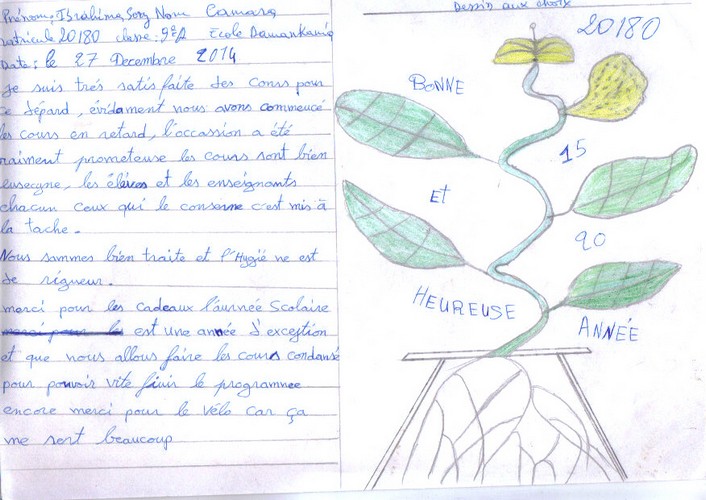 Prénom, Ibrahima Sory Nom Camara
matricule 20180 classe: 9ºA Ecole Damankania
Date: le 27 Decembre 2014
Je suis trés satisfaite des cours pour
ce départ, évidament nous avons commencé
les cours en retard, l'occassion a été
raiment prometeuse les cours sont bien
enseigne, les élèves et les enseignants
chacun ceux qui le conserne c'est mis à
la tache.
Nous sammes bien traite et l'Hygié ne est
de rigneur.
merci pour les cadeaux l'année Scolaire
est une année d'exception
et que nous allons faire les cours condansé
pour pouvoir vite finir le programme
encore merci pour le vélo car ça
me sert beaucoup
Dessin aux choix
20180
BONNE
15
ET
20
HEUREUSE
ANNÉE